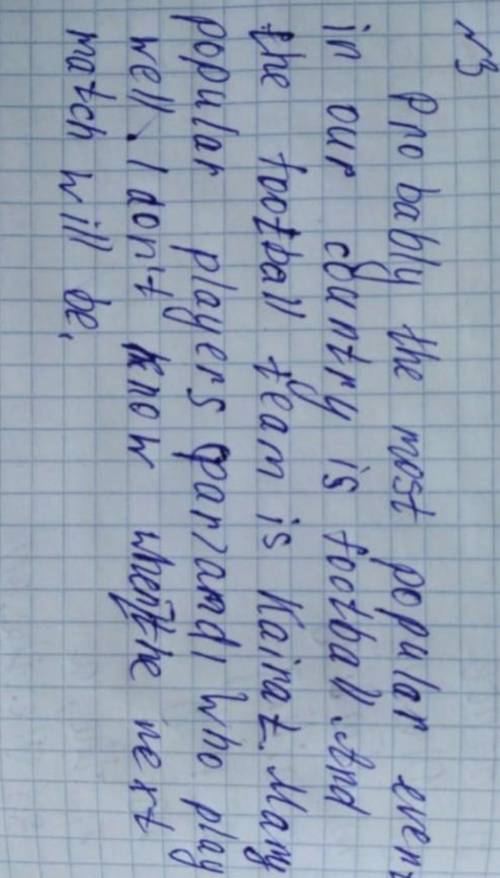 №3
Probably the most popular event
in our country is football. And
the football team is Kairat. Many
popular players Qarzandi who play
well. I don't know when the next
match will be.